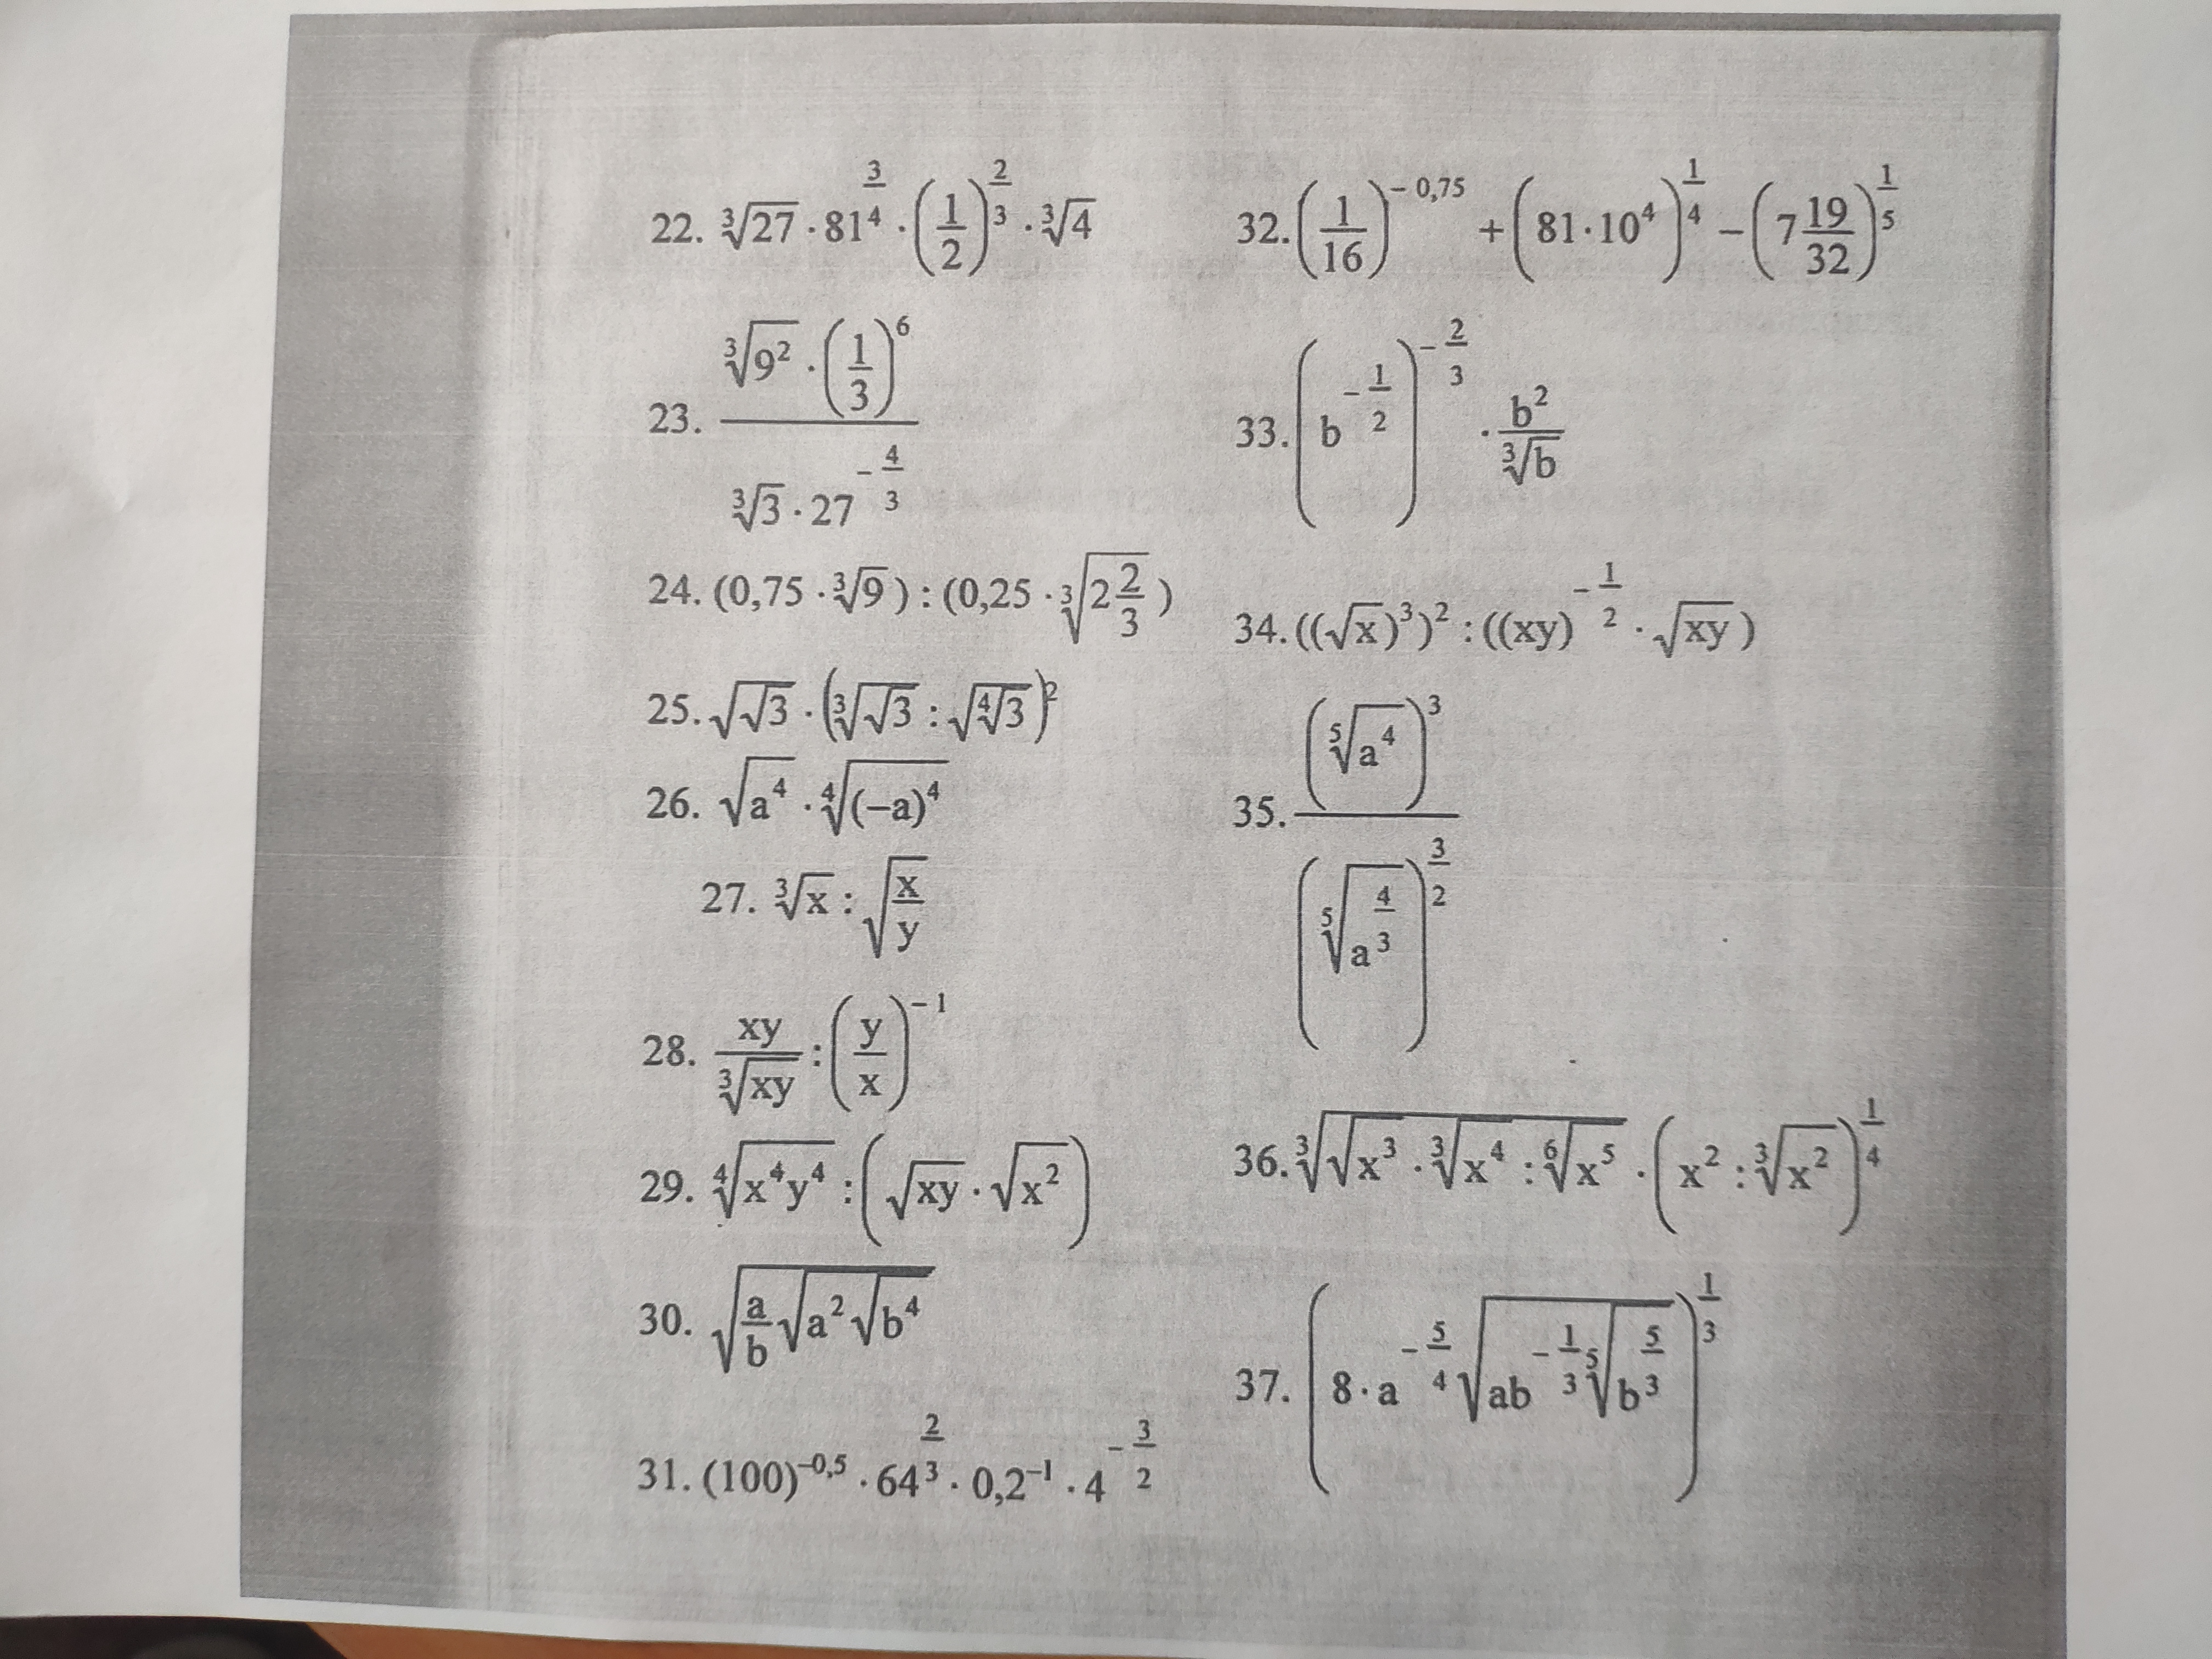 22. ∛27 · 81^(3/4) · (1/2)^(2/3) · ∛4
23. (∛(9²) · (1/3)⁶) / (∛3 · 27^(−4/3))
24. (0,75 · ∛9) : (0,25 · ∛(2 2/3))
25. √(√3) · (∛(√3) : √(∜3))²
26. √(a⁴) · ∜((−a)⁴)
27. ∛x : √(x/y)
28. xy/∛(xy) : (y/x)^(−1)
29. ∜(x⁴y⁴) : (√(xy) · √(x²))
30. √(a/b √(a² √(b⁴)))
31. (100)^(−0,5) · 64^(2/3) · 0,2^(−1) · 4^(−3/2)
32. (1/16)^(−0,75) + (81·10⁴)^(1/4) − (7 19/32)^(1/5)
33. (b^(−1/2))^(−2/3) · b²/∛b
34. ((√x)³)² : ((xy)^(−1/2) · √(xy))
35. (⁵√(a⁴))³ / (⁵√(a^(4/3)))^(3/2)
36. ∛(√(x³) · ∛(x⁴) : ⁶√(x⁵)) · (x² : ∛(x²))^(1/4)
37. (8 · a^(−5/4) √(ab^(−1/3) ⁵√(b^(5/3))))^(1/3)